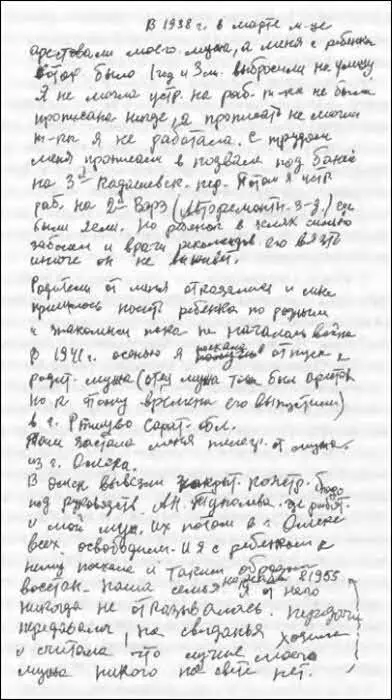 В 1938 г. в марте м-це
арестовали моего мужа, а меня с ребенком
котор. было 1 год и 3 м. выбросили на улицу
Я не могла устр. на раб. т-к не была
прописана нигде, а прописать не могли
т-к я не работала. С трудом
меня прописали в подвале под баней
на 3й Кадашевск. пер. Потом я устр
раб. на 2й ВАРЗ (Авторемонтн. з-д.) где
были ясли. Но ребенок в яслях сильно
заболел и врачи рекоменд. его взять
иначе он не выживет.
Родители от меня отказались и мне
пришлось носить ребенка по родным
и знакомым пока не началась война
В 1941 г. осенью я поехала в отпуск к
родит. мужа (отец мужа тоже был арестов
но к этому времени его выпустили)
в г. Ртищево Сарат. обл.
Там застала меня телегр. от мужа
из г. Омска.
В Омск вывезли констр. бюро
под руководств. А.Н. Туполева где работ.
и мой муж. Их потом в г. Омске
всех освободили. И я с ребенком к
нему поехала и таким образом
восстан. наша семья 1955
Я от него
никогда не отказывалась. Передачи
передавала, на свиданья ходила
и считала что лучше моего
мужа никого на свете нет.